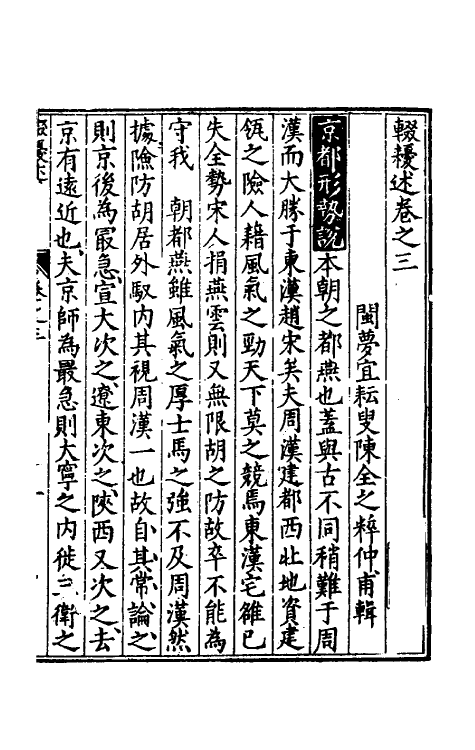 輟耰述卷之三
閩夢宜耘叟陳全之粹仲甫輯
京都形勢說本朝之都燕也蓋與古不同稍難于周
漢而大勝于東漢趙宋矣夫周漢建都西北地資建
瓴之險人藉風氣之勁天下莫之競焉東漢宅雒已
失全勢宋人捐燕雲則又無限胡之防故卒不能為
守我　朝都燕雖風氣之厚士馬之強不及周漢然
據險防胡居外馭内其視周漢一也故自其常論之
則京後為最急宣大次之遼東次之陝西又次之去
京有遠近也夫京師為最急則大寧之内徙三衛之